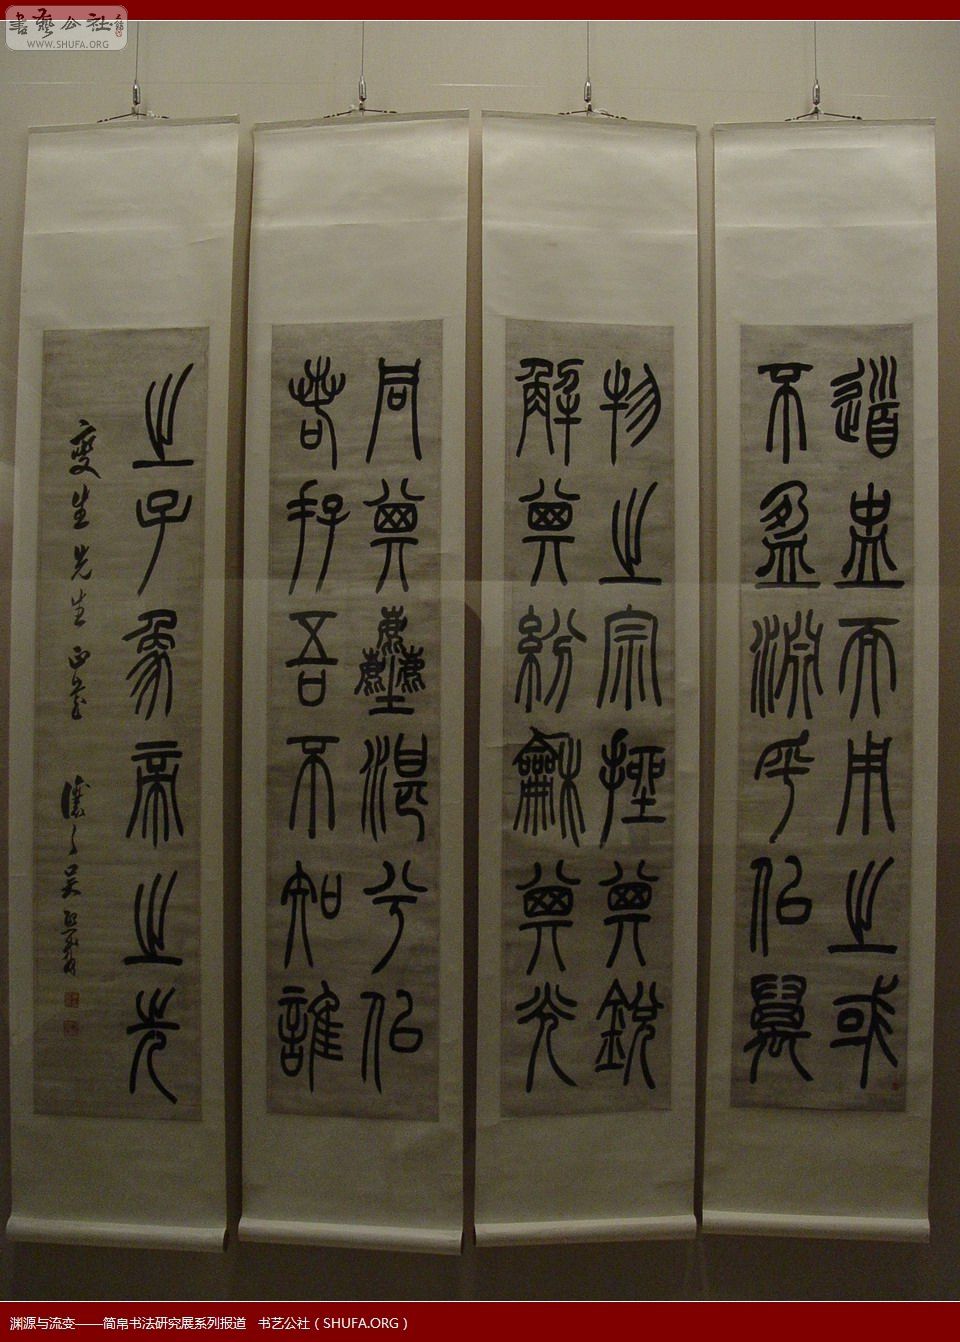 書藝公社
WWW.SHUFA.ORG
道盅而用之或
不盈淵乎佀萬
物之宗挫其銳
解其紛龢其光
同其塵湛兮佀
若存吾不知誰
之子象帝之先
生先生正篆 讓之吳熙載
渊源与流变——简帛书法研究展系列报道 书艺公社（SHUFA.ORG）